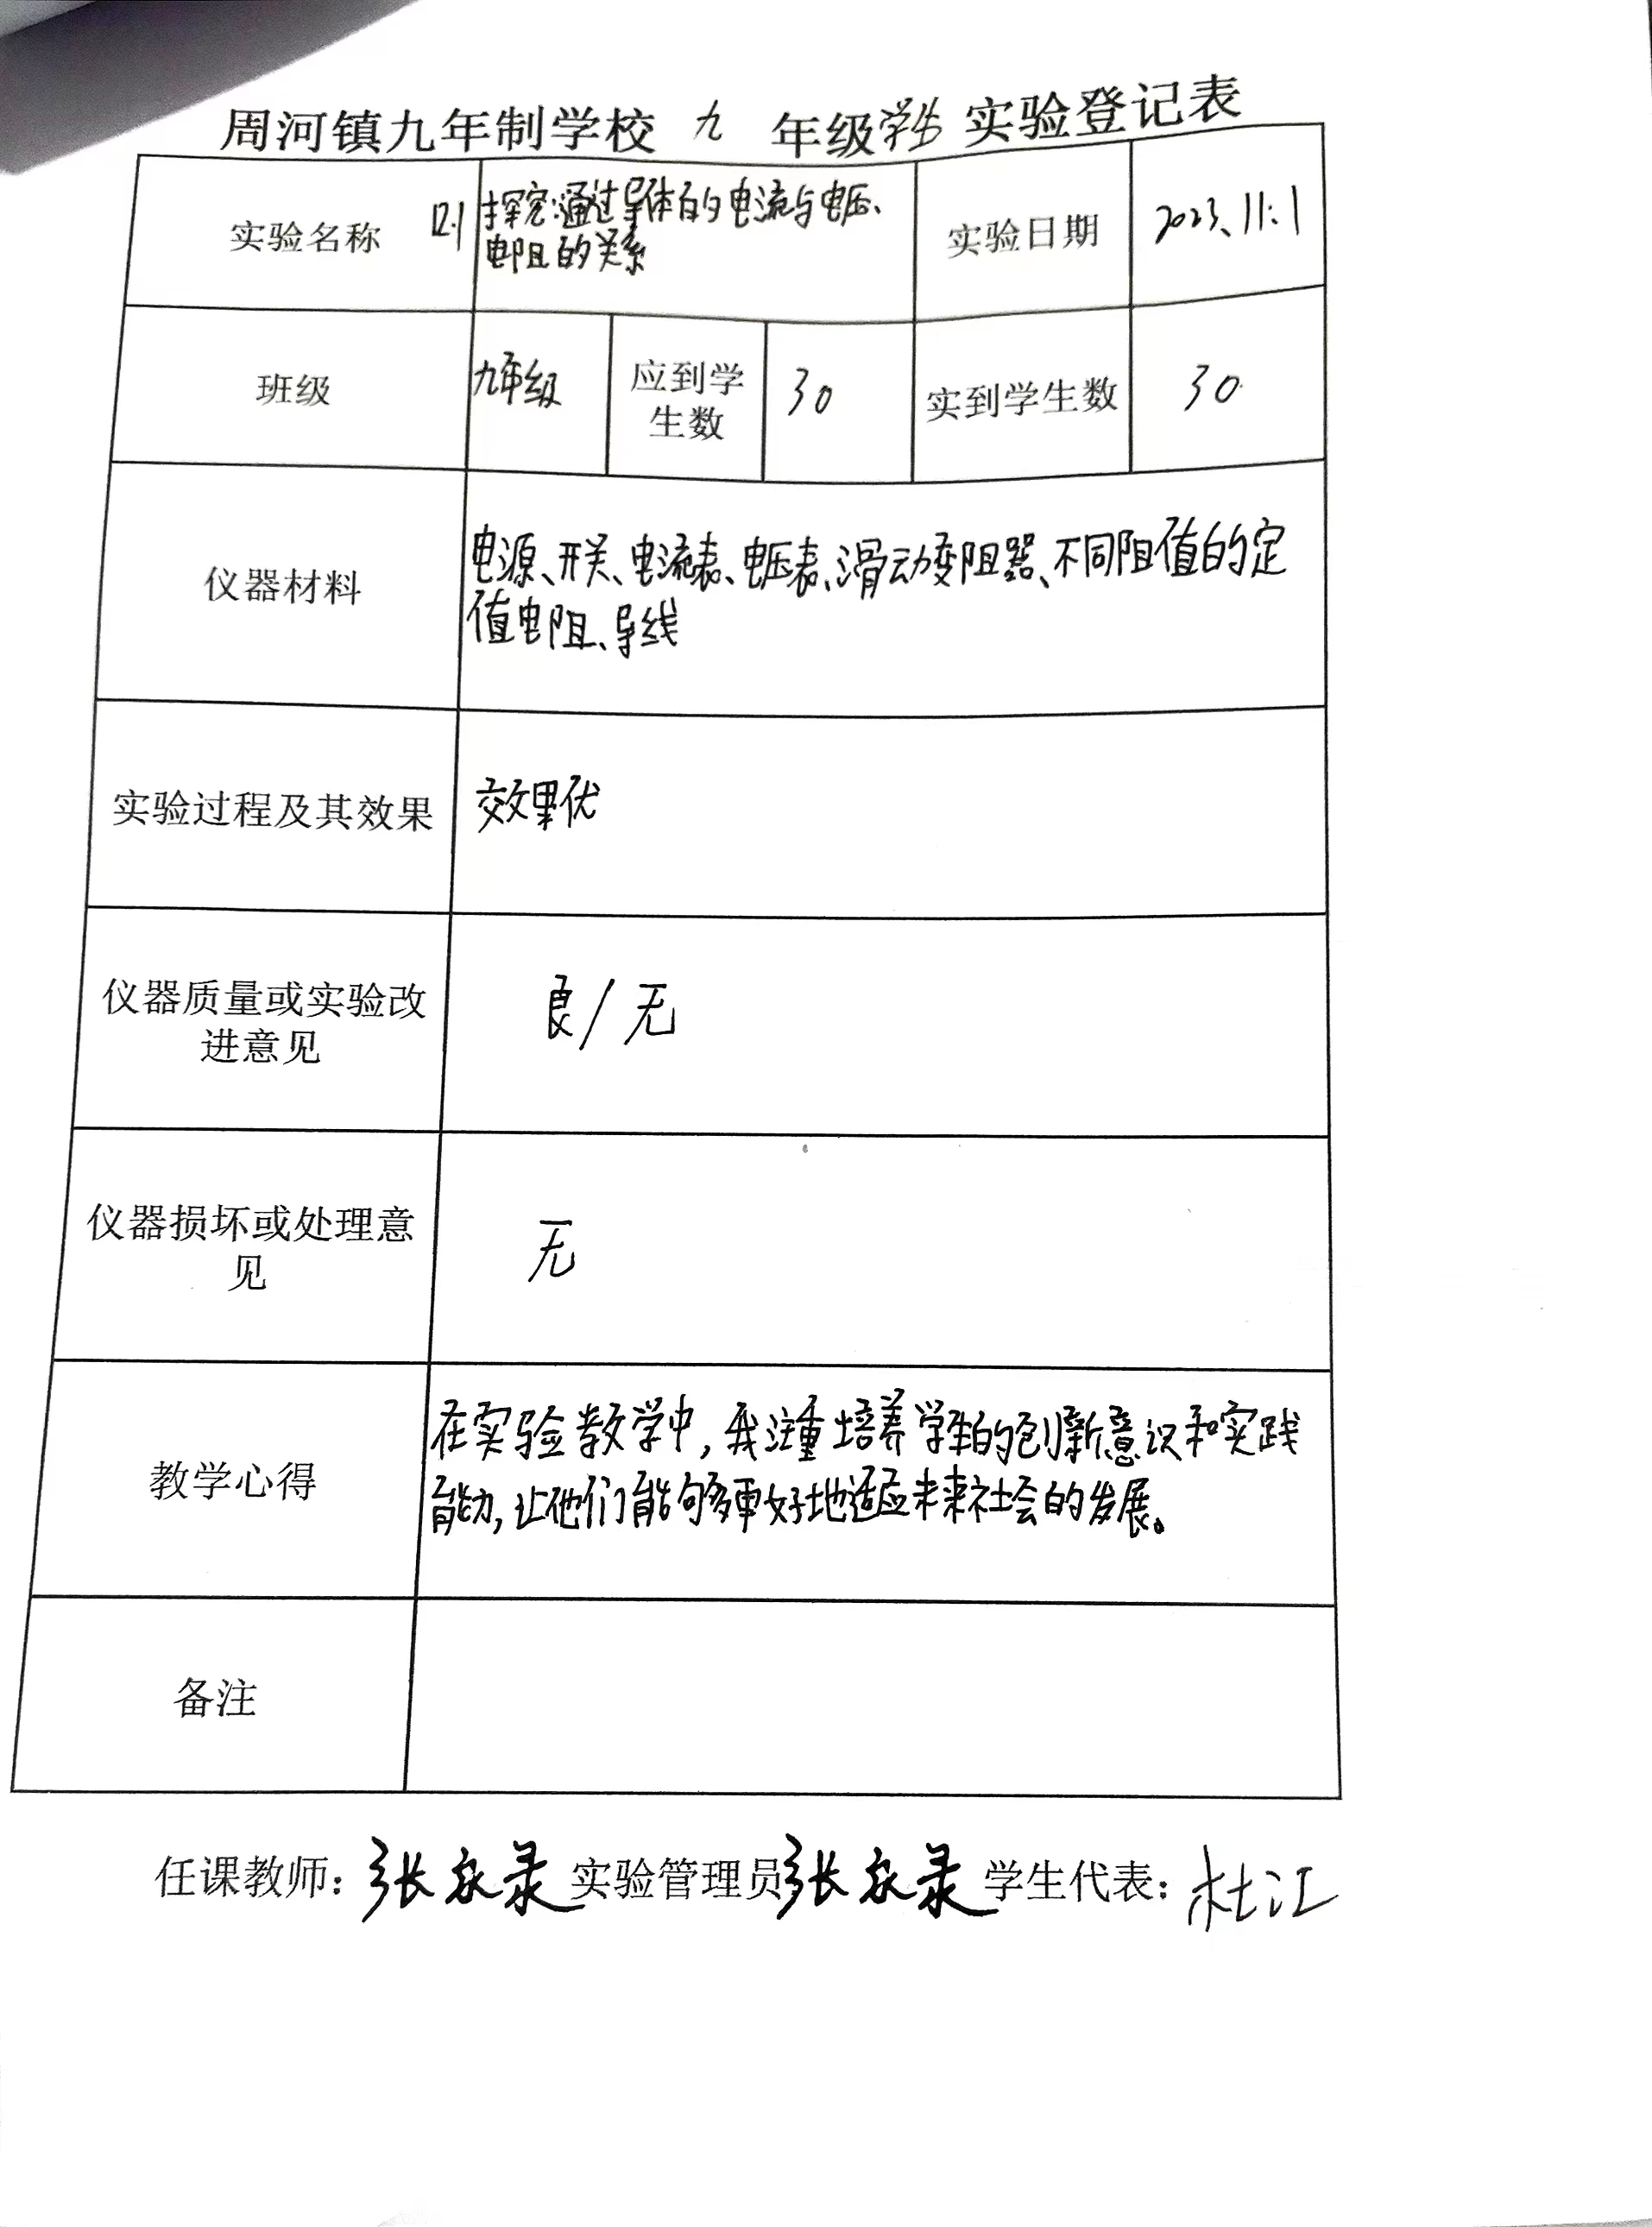 周河镇九年制学校 九 年级学生 实验登记表
实验名称 12.1 探究:通过导体的电流与电压、
电阻的关系
实验日期 2023、11:1
班级 九年级 应到学
生数 30 实到学生数 30
仪器材料 电源、开关、电流表、电压表、滑动变阻器、不同阻值的定
值电阻、导线
实验过程及其效果 效果优
仪器质量或实验改
进意见 良/无
仪器损坏或处理意
见 无
教学心得 在实验教学中,我注重培养学生的创新意识和实践
能力,让他们能够更好地适应未来社会的发展。
备注
任课教师: 张永录 实验管理员 张永录 学生代表: 杜江